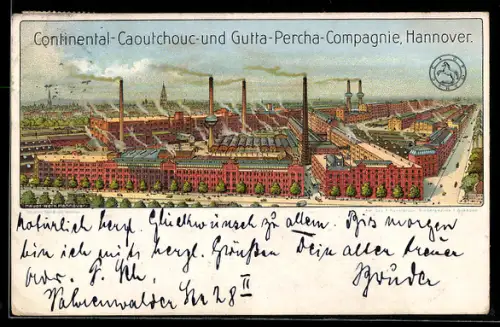 Continental-Caoutchouc-und Gutta-Percha-Compagnie, Hannover.
Natürlich herzl. Glückwunsch zu allem. Bis morgen
bin ich mit herzl. Grüßen Dein alter treuer
Bruder
Vahrenwalder Str 28 II